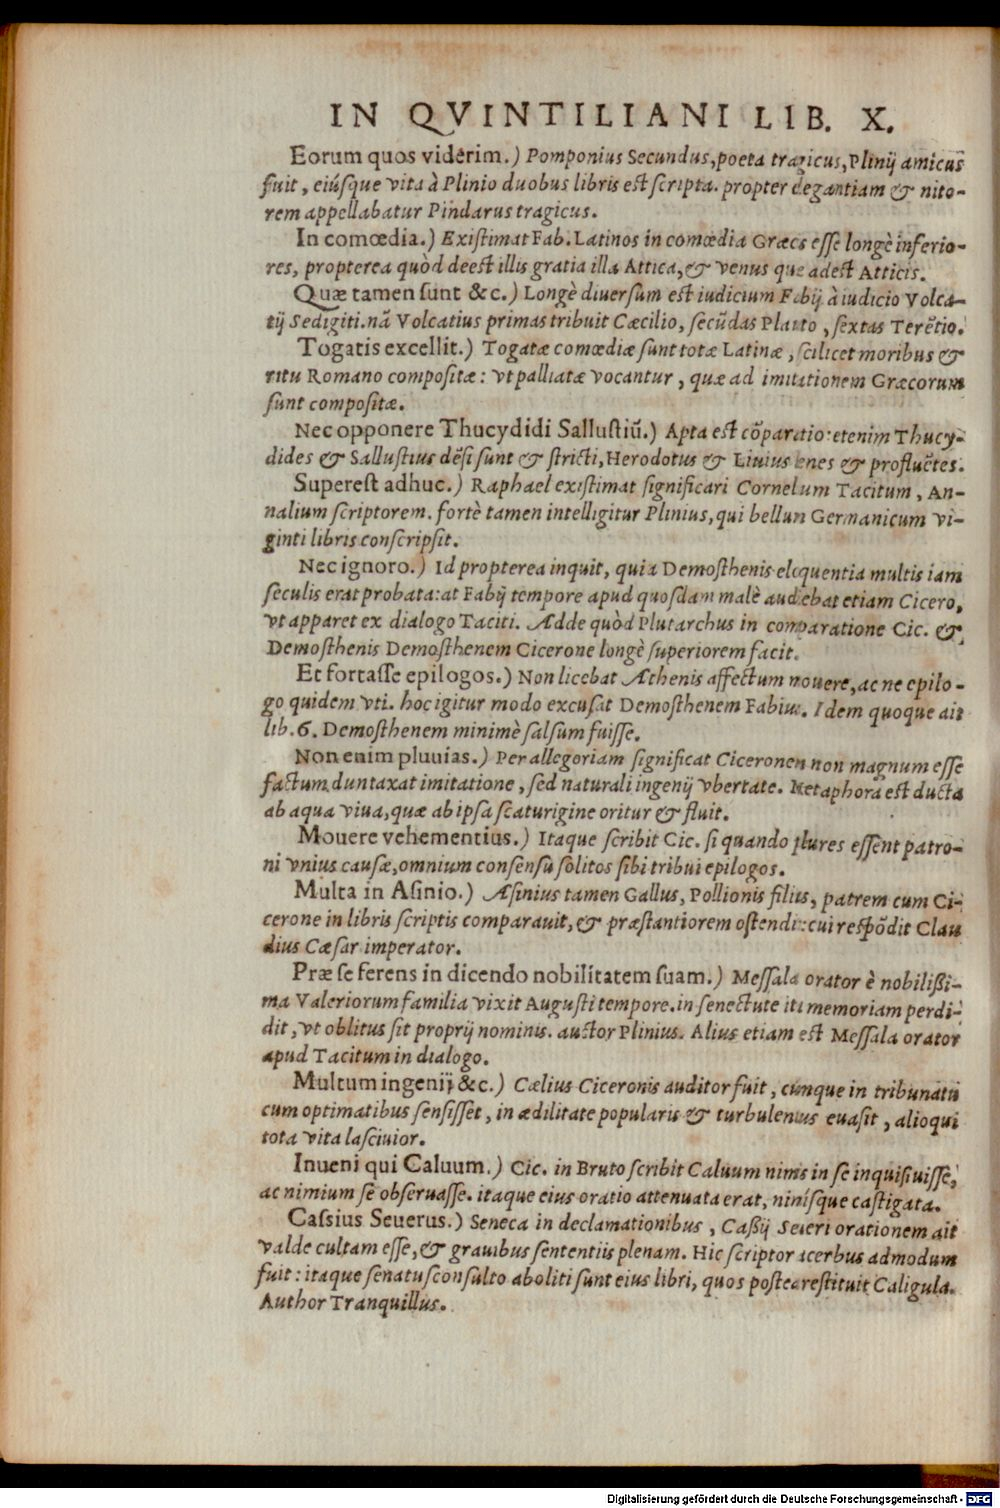 IN QVINTILIANI LIB. X.
Eorum quos viderim.) Pomponius Secundus, poeta tragicus, Plinij amicus
fuit, eiúsque vita à Plinio duobus libris est scripta. propter elegantiam & nito-
rem appellabatur Pindarus tragicus.
In comœdia.) Existimat Fab. Latinos in comœdia Græcis esse longè inferio-
res, propterea quòd deest illis gratia illa Attica, & venus quæ adest Atticis.
Quæ tamen sunt &c.) Longè diuersum est iudicium Fabij à iudicio Volca-
tij Sedigiti. nã Volcatius primas tribuit Cæcilio, secũdas Plauto, sextas Terẽtio.
Togatis excellit.) Togatæ comœdiæ sunt totæ Latinæ, scilicet moribus &
ritu Romano compositæ: vt palliatæ vocantur, quæ ad imitationem Græcorum
sunt compositæ.
Nec opponere Thucydidi Sallustiũ.) Apta est cõparatio: etenim Thucy-
dides & Sallustius dẽsi sunt & stricti, Herodotus & Liuius lenes & profluẽtes.
Superest adhuc.) Raphael existimat significari Cornelium Tacitum, An-
nalium scriptorem. fortè tamen intelligitur Plinius, qui bellum Germanicum vi-
ginti libris conscripsit.
Nec ignoro.) Id propterea inquit, quia Demosthenis eloquentia multis iam
seculis erat probata: at Fabij tempore apud quosdam malè audiebat etiam Cicero,
vt apparet ex dialogo Taciti. Adde quòd Plutarchus in comparatione Cic. &
Demosthenis Demosthenem Cicerone longè superiorem facit.
Et fortasse epilogos.) Non licebat Athenis affectum mouere, ac ne epilo-
go quidem vti. hoc igitur modo excusat Demosthenem Fabius. Idem quoque ait
lib. 6. Demosthenem minimè salsum fuisse.
Non enim pluuias.) Per allegoriam significat Ciceronem non magnum esse
factum duntaxat imitatione, sed naturali ingenij vbertate. Metaphora est ducta
ab aqua viua, quæ ab ipsa scaturigine oritur & fluit.
Mouere vehementius.) Itaque scribit Cic. si quando plures essent patro-
ni vnius causæ, omnium consensu solitos sibi tribui epilogos.
Multa in Asinio.) Asinius tamen Gallus, Pollionis filius, patrem cum Ci-
cerone in libris scriptis comparauit, & præstantiorem ostendit: cui respõdit Clau
dius Cæsar imperator.
Præ se ferens in dicendo nobilitatem suam.) Messala orator è nobilißi-
ma Valeriorum familia vixit Augusti tempore. in senectute ita memoriam perdi-
dit, vt oblitus sit proprij nominis. auctor Plinius. Alius etiam est Messala orator
apud Tacitum in dialogo.
Multum ingenij &c.) Cælius Ciceronis auditor fuit, cúmque in tribunatu
cum optimatibus sensisset, in ædilitate popularis & turbulentus euasit, alioqui
tota vita lasciuior.
Inueni qui Caluum.) Cic. in Bruto scribit Caluum nimis in se inquisiuisse,
ac nimium se obseruasse. itaque eius oratio attenuata erat, nimísque castigata.
Cassius Seuerus.) Seneca in declamationibus, Caßij Seueri orationem ait
valde cultam esse, & grauibus sententiis plenam. Hic scriptor acerbus admodum
fuit: itaque senatusconsulto aboliti sunt eius libri, quos postea restituit Caligula.
Author Tranquillus.
Digitalisierung gefördert durch die Deutsche Forschungsgemeinschaft - DFG